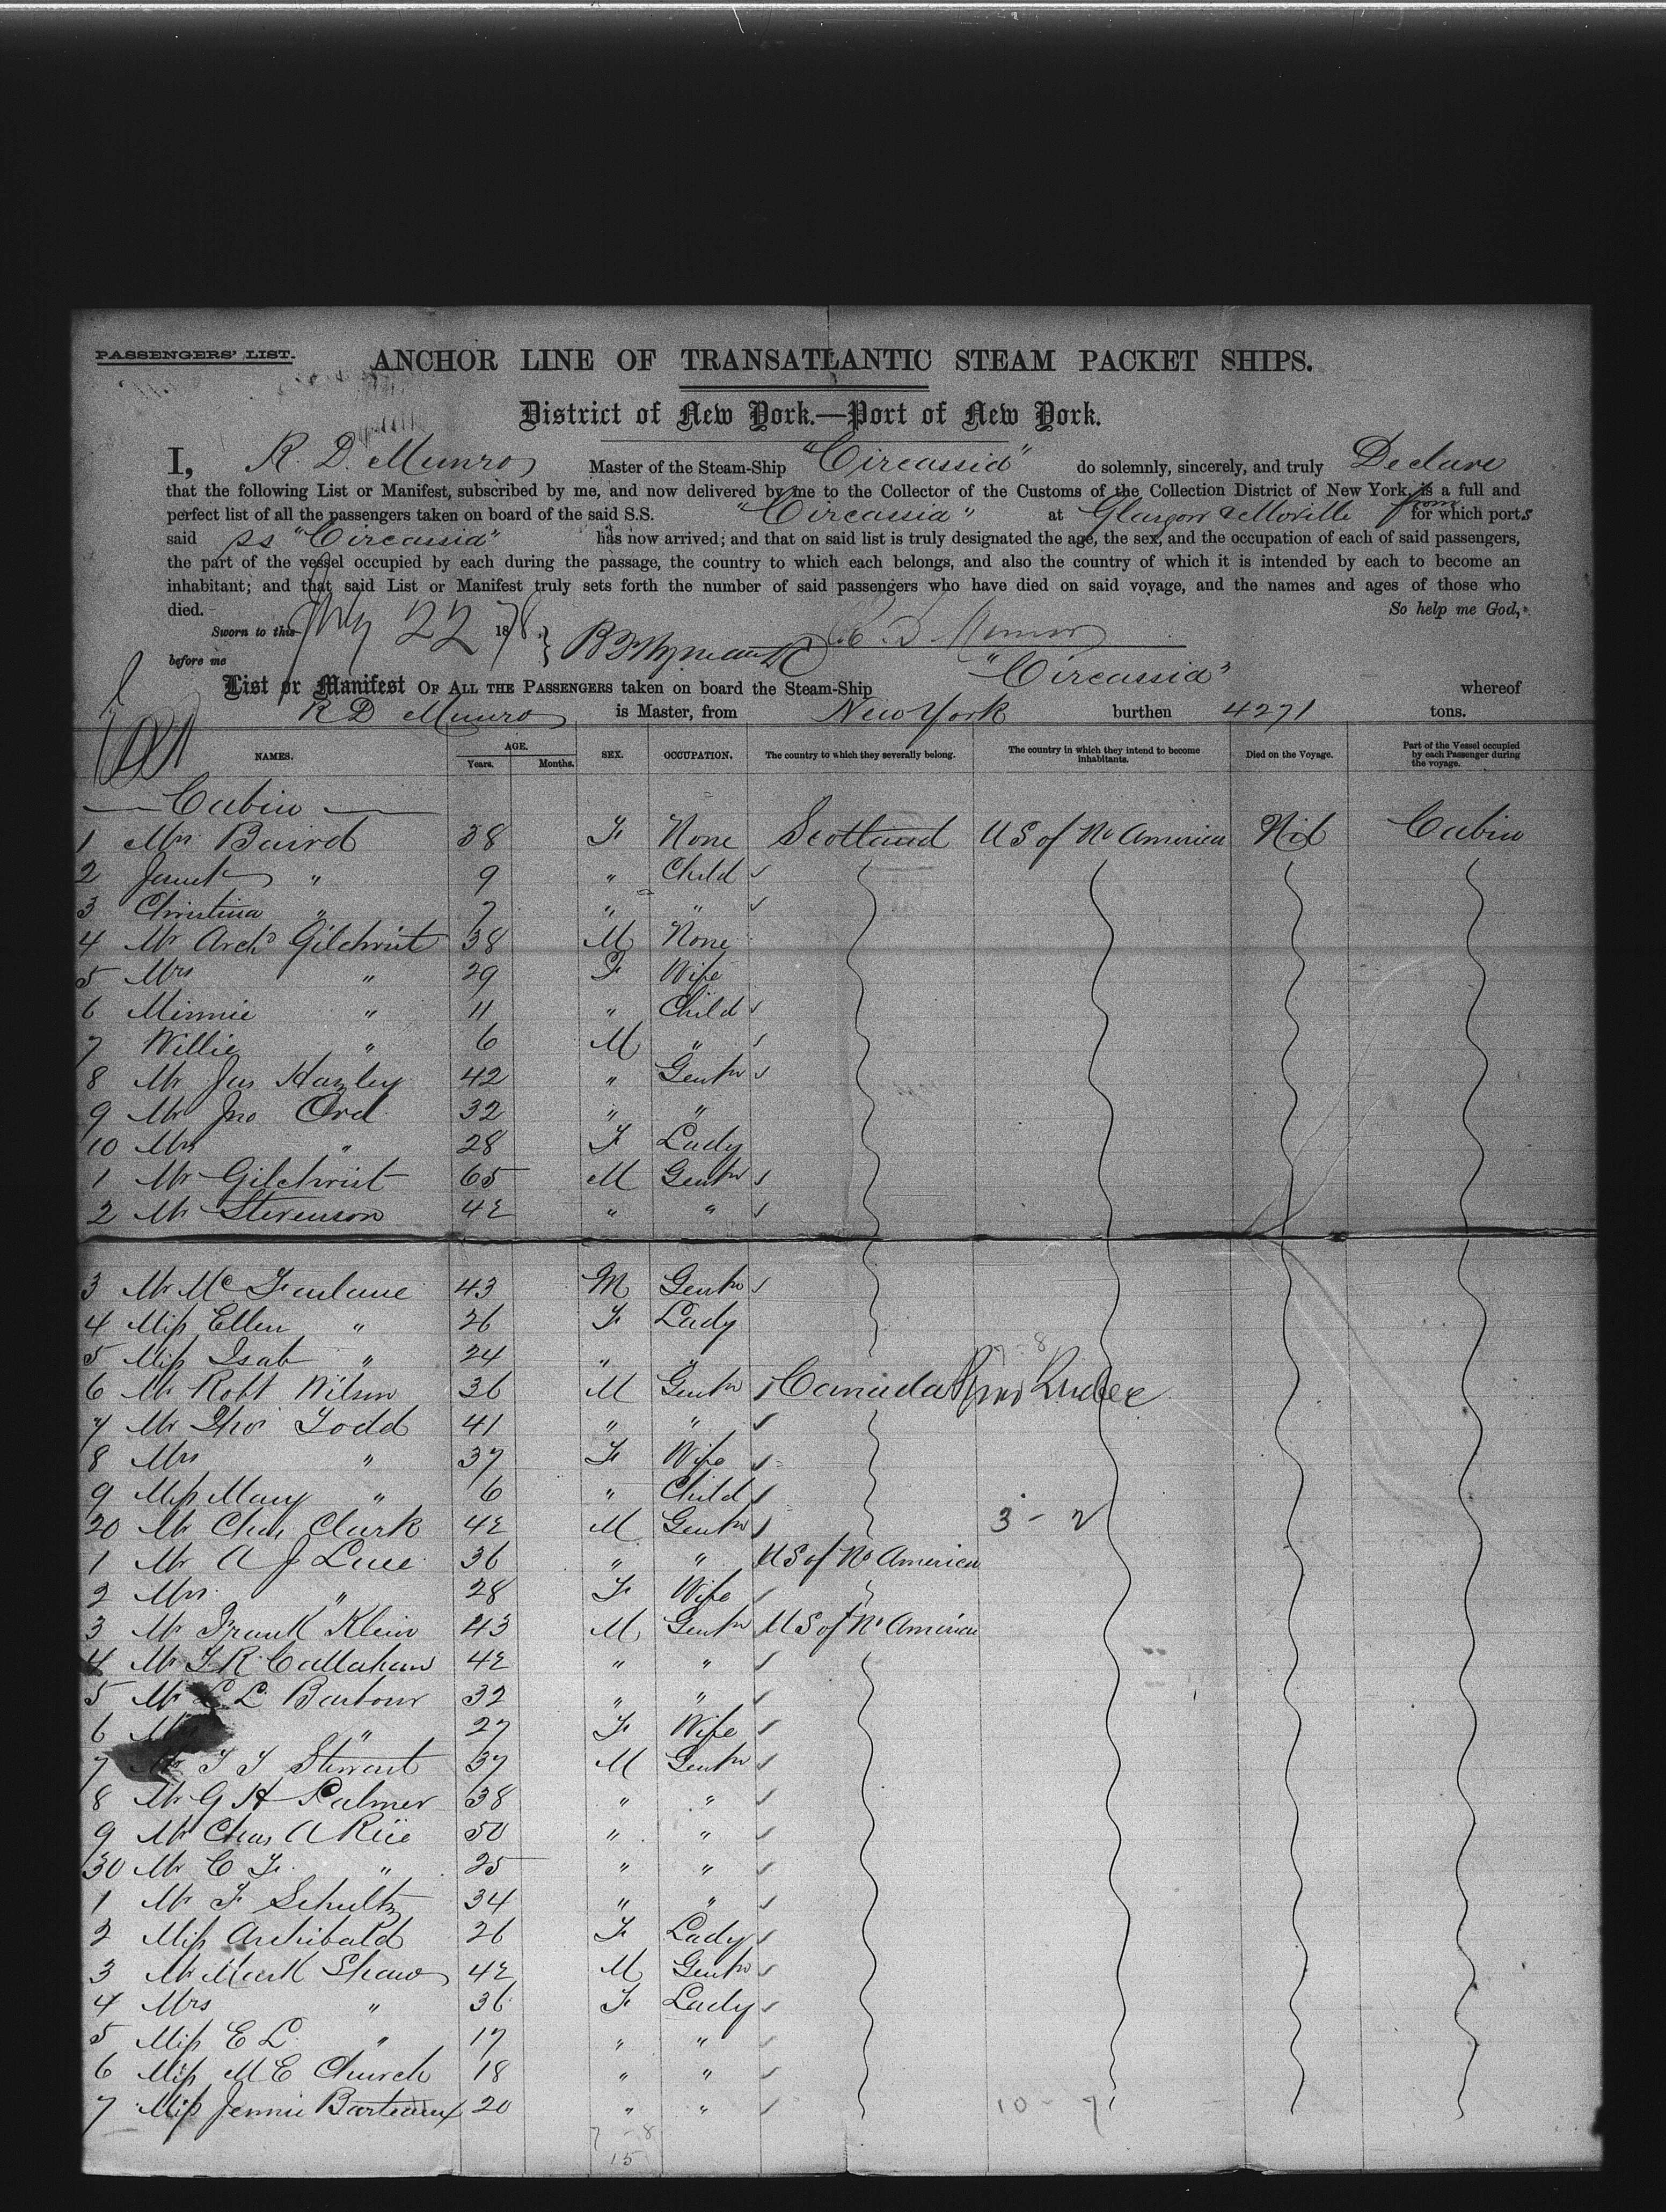 PASSENGERS' LIST.
ANCHOR LINE OF TRANSATLANTIC STEAM PACKET SHIPS.
District of New York.—Port of New York.
I, R. D. Munro Master of the Steam-Ship "Circassia" do solemnly, sincerely, and truly Declare
that the following List or Manifest, subscribed by me, and now delivered by me to the Collector of the Customs of the Collection District of New York, is a full and
perfect list of all the passengers taken on board of the said S.S. "Circassia" at Glasgow & Moville from for which ports
said SS "Circassia" has now arrived; and that on said list is truly designated the age, the sex, and the occupation of each of said passengers,
the part of the vessel occupied by each during the passage, the country to which each belongs, and also the country of which it is intended by each to become an
inhabitant; and that said List or Manifest truly sets forth the number of said passengers who have died on said voyage, and the names and ages of those who
died. So help me God,
Sworn to this July 22 1878. R. D. Munro
before me
List or Manifest OF ALL THE PASSENGERS taken on board the Steam-Ship "Circassia" whereof
R D Munro is Master, from New York burthen 4271 tons.
NAMES. AGE. Years. Months. SEX. OCCUPATION. The country to which they severally belong. The country in which they intend to become inhabitants. Died on the Voyage. Part of the Vessel occupied by each Passenger during the voyage.
Cabin
1 Mrs Baird 38 F None Scotland U S of No America Nil Cabin
2 Janet " 9 " Child
3 Christina " 7 " "
4 Mr Archd Gilchrist 38 M None
5 Mrs " 29 F Wife
6 Minnie " 11 " Child
7 Willie " 6 M "
8 Mr Jas Hazley 42 " Gentn
9 Mr Jno Ord 32 " "
10 Mrs " 28 F Lady
1 Mr Gilchrist 65 M Gentn
2 Mr Stevenson 42 " "
3 Mr McFarlane 43 M Gentn
4 Miss Ellen " 26 F Lady
5 Miss Isab " 24 " "
6 Mr Robt Wilson 36 M Gentn Canada
7 Mr Thos Todd 41 " "
8 Mrs " 37 F Wife
9 Miss Mary " 6 " Child
20 Mr Chas Clark 42 M Gentn 3 - 2
1 Mr A J Luce 36 " " U S of No America
2 Mrs " 28 F Wife
3 Mr Frank Klein 43 M Gentn U S of No America
4 Mr F. R. Callahan 42 " "
5 Mr L. Barbour 32 " "
6 " 27 F Wife
7 Stewart 37 M Gentn
8 Mr G H Palmer 38 " "
9 Mr Chas A Rice 50 " "
30 Mr C F. " 25 " "
1 Mr F Schultz 34 " "
2 Miss Archibald 26 F Lady
3 Mr Mark Shaw 42 M Gentn
4 Mrs " 36 F Lady
5 Miss E L " 17 " "
6 Miss M E Church 18 " "
7 Miss Jennie Barteaux 20 " " 10 - 7
7 - 8
15